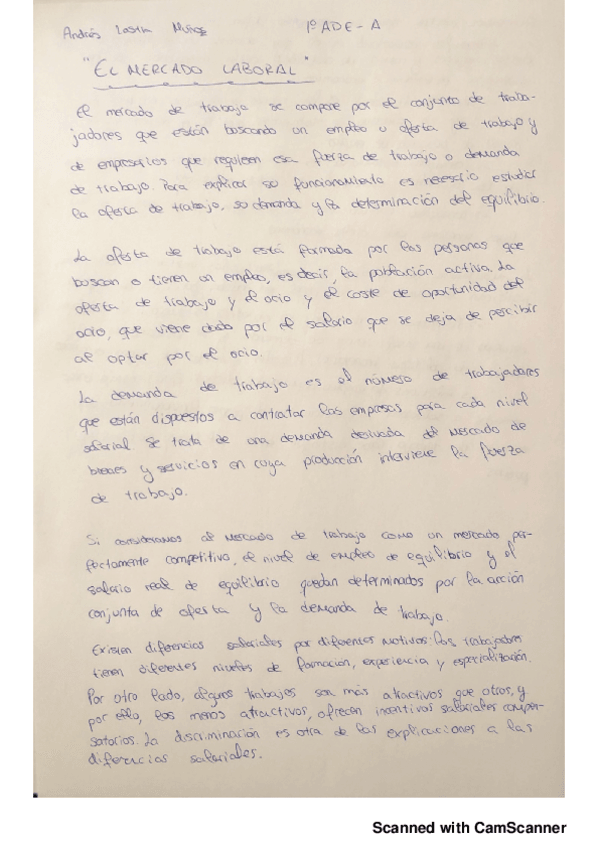 Andrés Lastra Muñoz 1º ADE - A
"EL MERCADO LABORAL"
El mercado de trabajo se compone por el conjunto de traba-
jadores que están buscando un empleo u oferta de trabajo y
de empresarios que requieren esa fuerza de trabajo o demanda
de trabajo. Para explicar su funcionamiento es necesario estudiar
la oferta de trabajo, su demanda y la determinación del equilibrio.
La oferta de trabajo está formada por las personas que
buscan o tienen un empleo, es decir, la población activa. La
oferta de trabajo y el ocio y el coste de oportunidad del
ocio, que viene dado por el salario que se deja de percibir
al optar por el ocio.
La demanda de trabajo es el número de trabajadores
que están dispuestos a contratar las empresas para cada nivel
salarial. Se trata de una demanda derivada del mercado de
bienes y servicios en cuya producción interviene la fuerza
de trabajo.
Si consideramos al mercado de trabajo como un mercado per-
fectamente competitivo, el nivel de empleo de equilibrio y el
salario real de equilibrio quedan determinados por la acción
conjunta de oferta y la demanda de trabajo.
Existen diferencias salariales por diferentes motivos: los trabajadores
tienen diferentes niveles de formacion, experiencia y especialización.
Por otro lado, algunos trabajos son más atractivos que otros, y
por ello, los menos atractivos, ofrecen incentivos salariales compen-
satorios. La discriminación es otra de las explicaciones a las
diferencias salariales.
Scanned with CamScanner